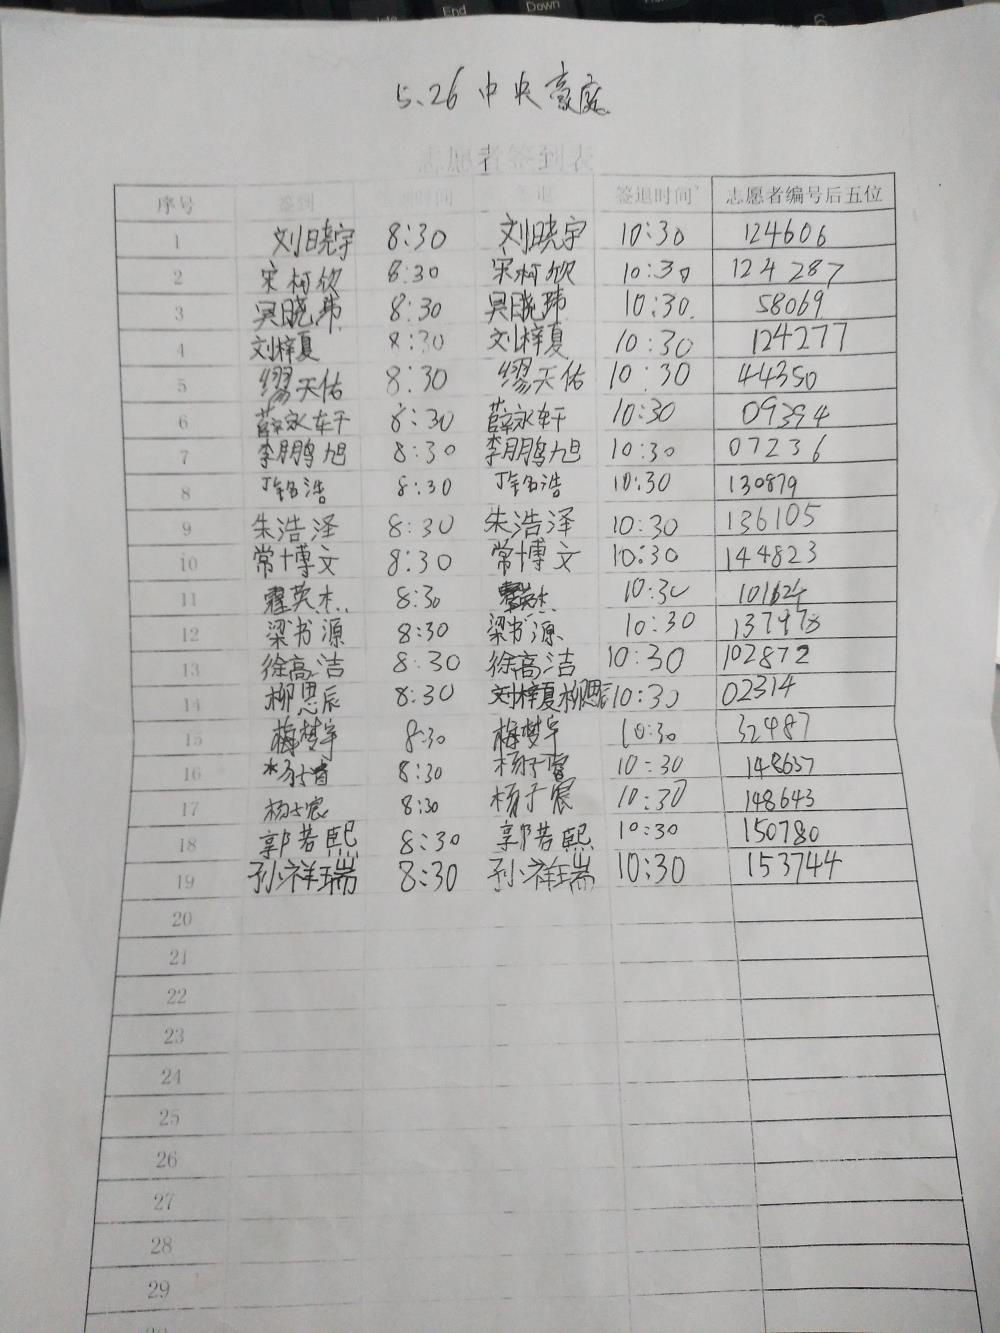 End
Down
6
5.26 中央豪庭
志愿者签到表
序号 签到 签到时间 签退 签退时间 志愿者编号后五位
1 刘晓宇 8:30 刘晓宇 10:30 124606
2 宋柯欣 8:30 宋柯欣 10:30 124287
3 吴晓玮 8:30 吴晓玮 10:30 58069
4 刘梓夏 8:30 刘梓夏 10:30 124277
5 缪天佑 8:30 缪天佑 10:30 44350
6 薛永轩 8:30 薛永轩 10:30 09394
7 李鹏旭 8:30 李鹏旭 10:30 07236
8 丁铭浩 8:30 丁铭浩 10:30 130879
9 朱浩泽 8:30 朱浩泽 10:30 136105
10 常博文 8:30 常博文 10:30 144823
11 霍英杰 8:30 10:30 101624
12 梁书源 8:30 梁书源 10:30 137978
13 徐高洁 8:30 徐高洁 10:30 102872
14 柳思辰 8:30 刘梓夏柳思辰 10:30 02314
15 梅梦宇 8:30 梅梦宇 10:30 32487
16 8:30 杨子睿 10:30 148657
17 杨子宸 8:30 杨子宸 10:30 148643
18 郭若熙 8:30 郭若熙 10:30 150780
19 孙祥瑞 8:30 孙祥瑞 10:30 153744
20
21
22
23
24
25
26
27
28
29